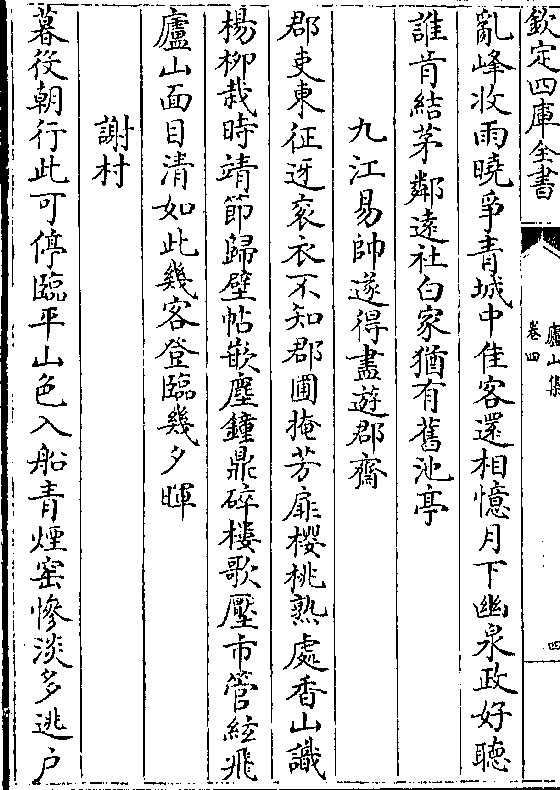 欽定四庫全書
廬山集
卷四
四
亂峰收雨曉爭青城中佳客還相憶月下幽泉政好聽
誰肯結茅鄰遠社白家猶有舊池亭
九江易帥遂得盡遊郡齋
郡吏東征迓衮衣不知郡圃掩芳扉櫻桃熟處香山識
楊柳栽時靖節歸壁帖嵌塵鐘鼎碎樓歌壓市管絃飛
廬山面目清如此幾客登臨幾夕暉
謝村
暮從朝行此可停臨平山色入船青煙窑慘淡多逃户